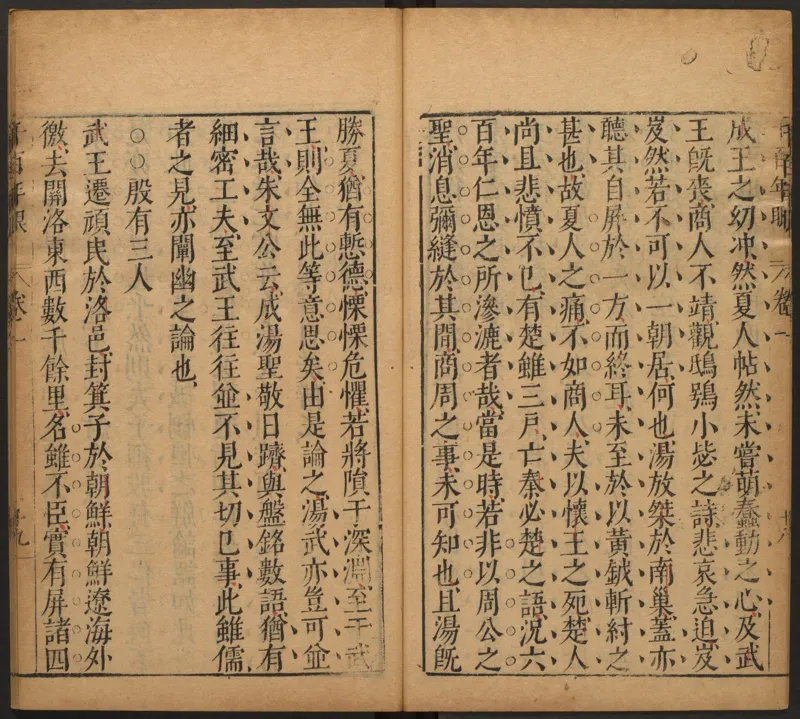 成王之幼冲然夏人帖然未嘗萌蠢動之心及武
王既喪商人不靖觀鴟鴞小毖之詩悲哀急迫岌
岌然若不可以一朝居何也湯放桀於南巢蓋亦
聽其自屏於一方而終耳未至於以黃鉞斬紂之
甚也故夏人之痛不如商人夫以懷王之死楚人
尚且悲憤不已有楚雖三戶亡秦必楚之語況六
百年仁恩之所滲漉者哉當是時若非以周公之
聖消息彌縫於其間商周之事未可知也且湯既
勝夏猶有慙德慄慄危懼若將隕于深淵至于武
王則全無此等意思矣由是論之湯武亦豈可並
言哉朱文公云成湯聖敬日躋與盤銘數語猶有
細密工夫至武王往往並不見其切已事此雖儒
者之見亦闡幽之論也
○○殷有三人
武王遷頑民於洛邑封箕子於朝鮮朝鮮遼海外
徼去開洛東西數千餘里名雖不臣實有屏諸四